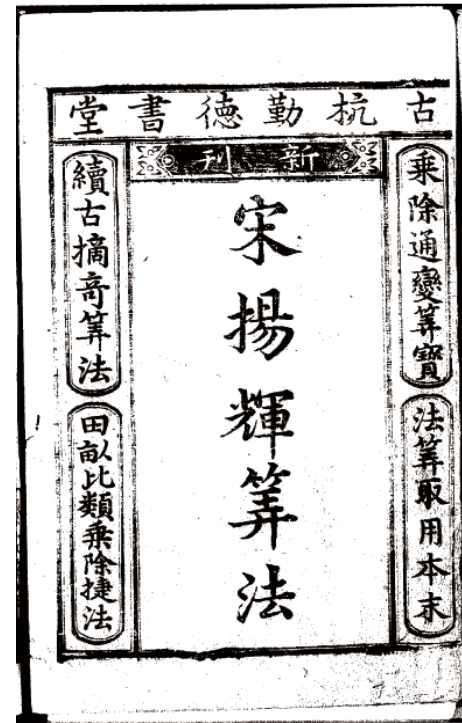 古杭勤德書堂
新刊
乘除通變筭寶
法筭取用本末
宋揚輝筭法
續古摘奇筭法
田畝比類乘除捷法